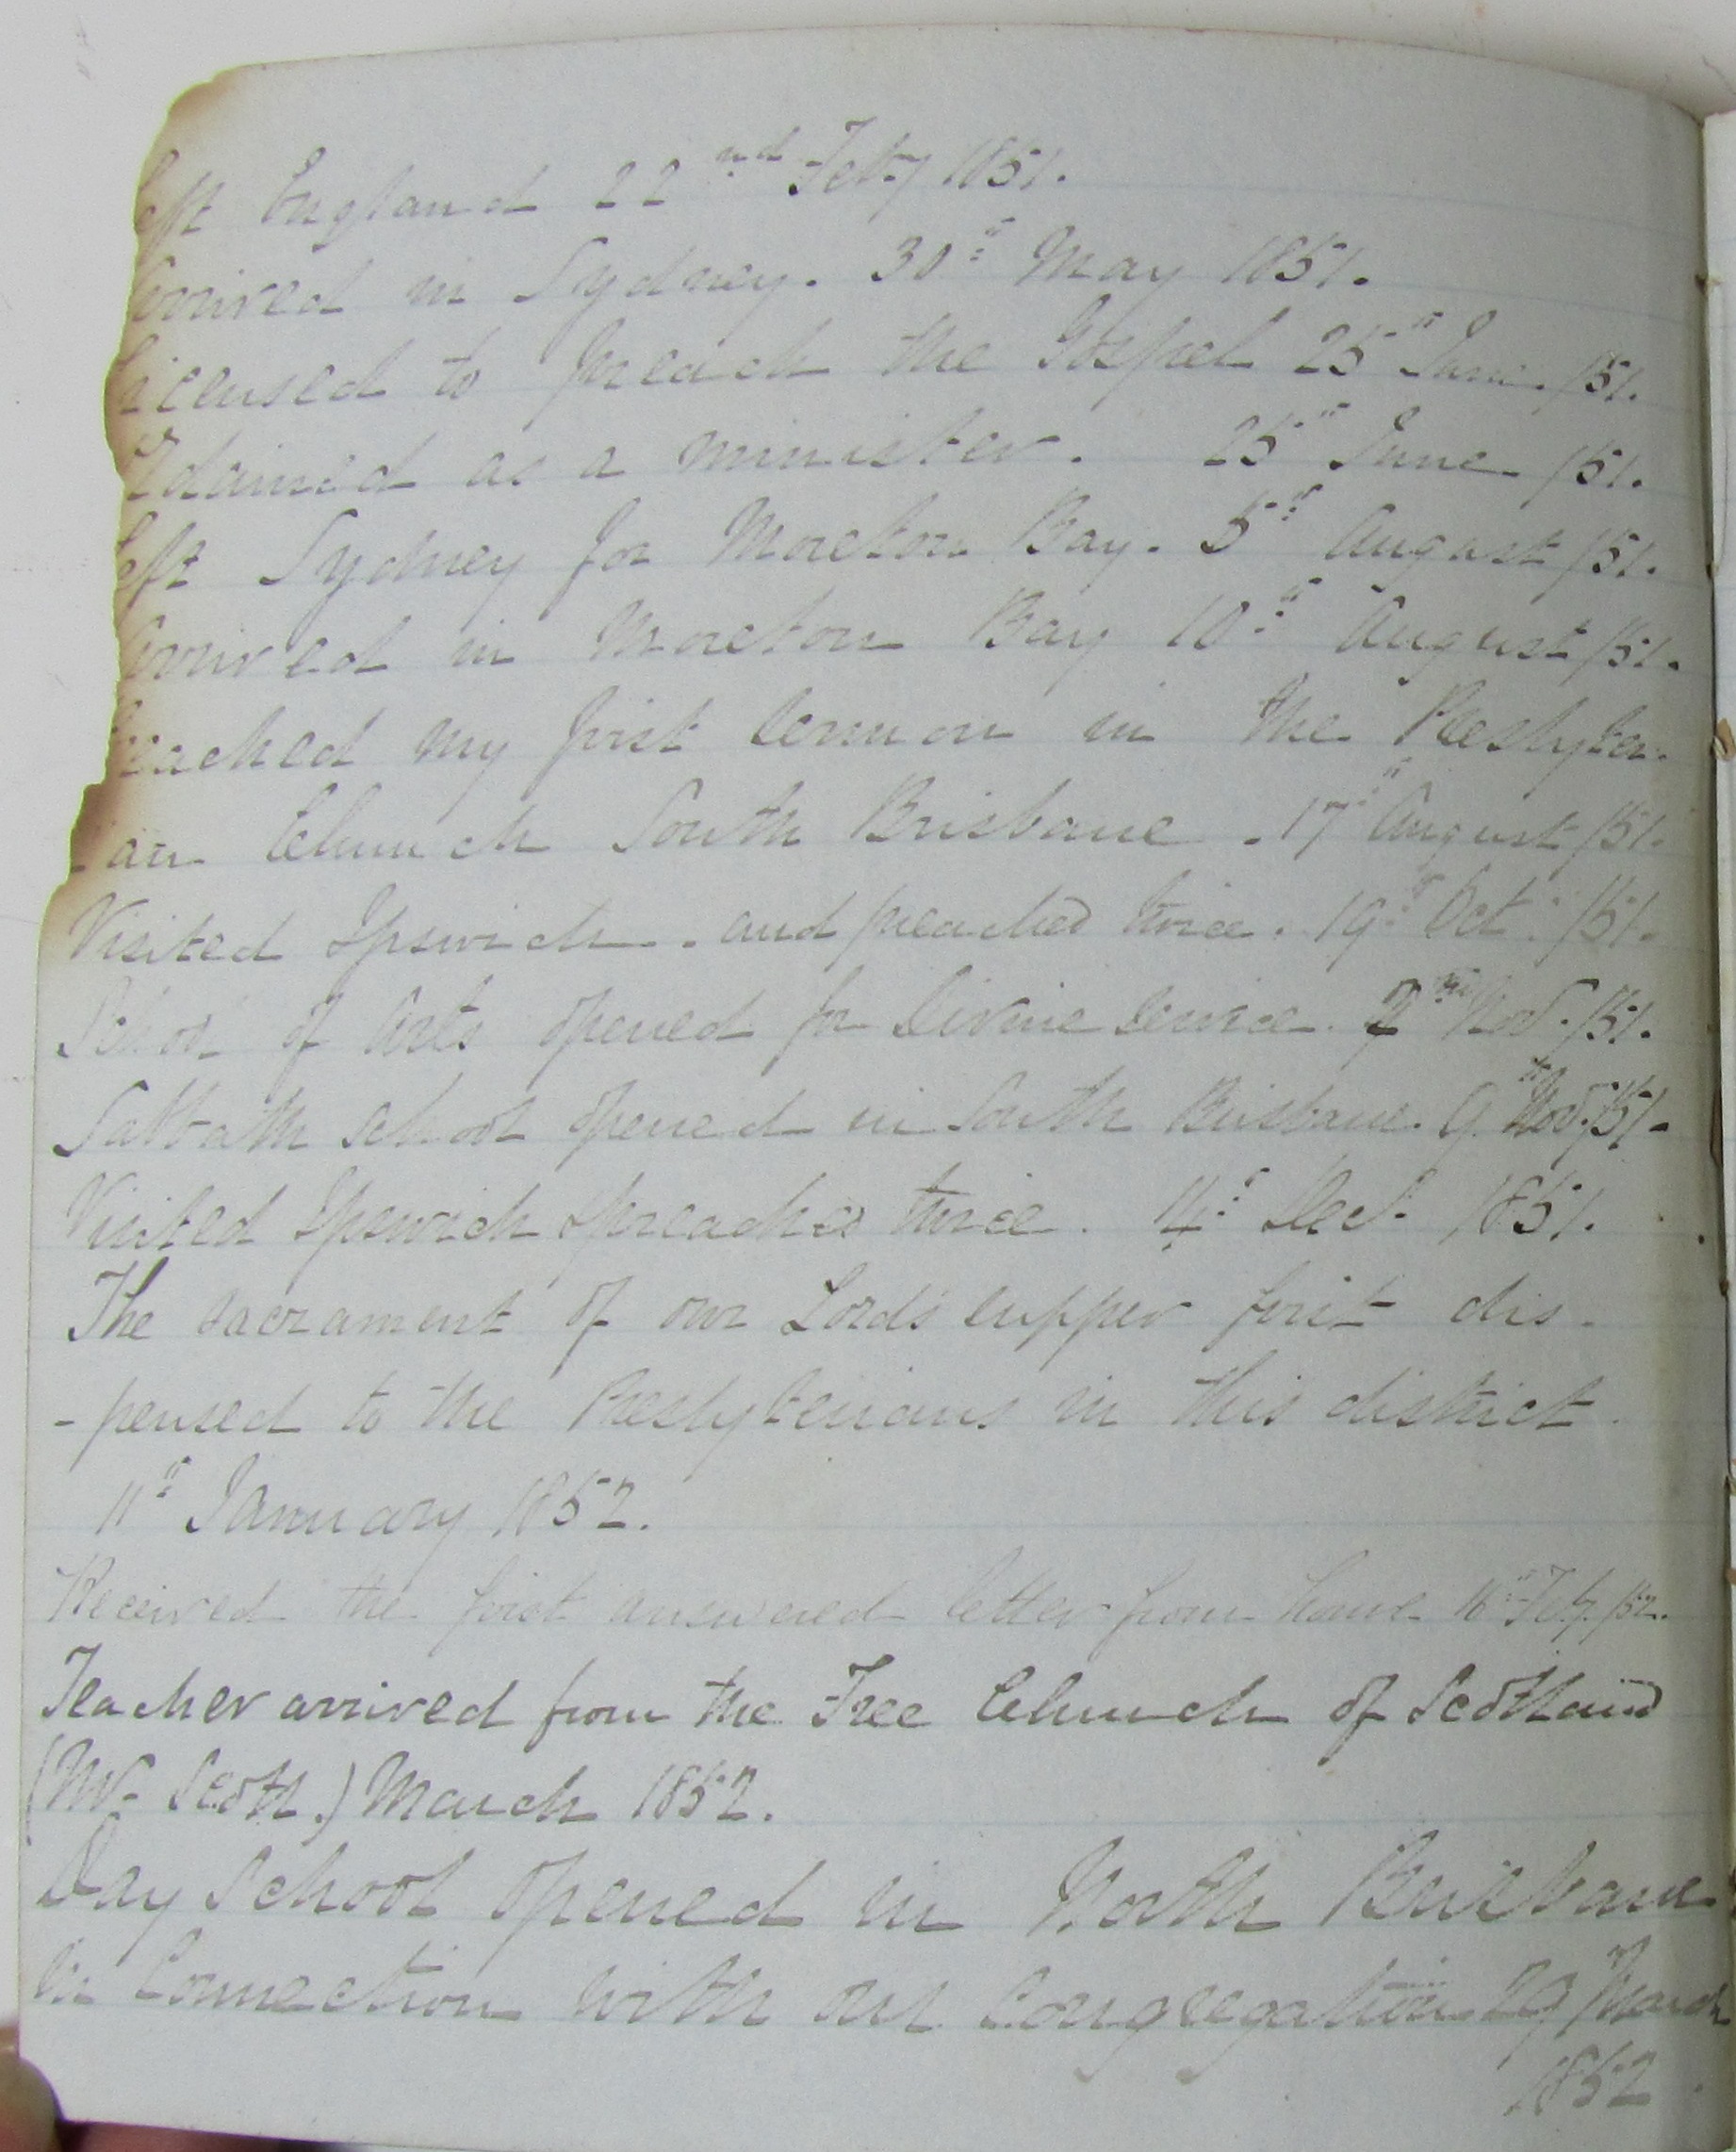 eft England 22nd Feby 1851.
Arrived in Sydney. 30th May 1851.
Licensed to preach the Gospel 25th June /51.
Ordained as a minister. 25th June /51.
eft Sydney for Moreton Bay. 5th August /51.
Arrived in Moreton Bay 10th August /51.
reached my first sermon in the Presbyter-
-ian Church South Brisbane. 17th August /51.
Visited Ipswich. and preached twice. 19th Oct. /51.
School of Arts opened for Divine Service. 2nd Nov. /51.
Sabbath School opened in South Brisbane. 9th Nov. /51-
Visited Ipswich & preached twice. 14th Dec. 1851.
The sacrament of our Lord's supper first dis-
-pensed to the Presbyterians in this district.
11th January 1852.
Received the first answered letter from home 16th Feby /52.
Teacher arrived from the Free Church of Scotland
(Mr Scott.) March 1852.
Day School opened in North Brisbane
in Connection with our Congregation 29th March
1852.